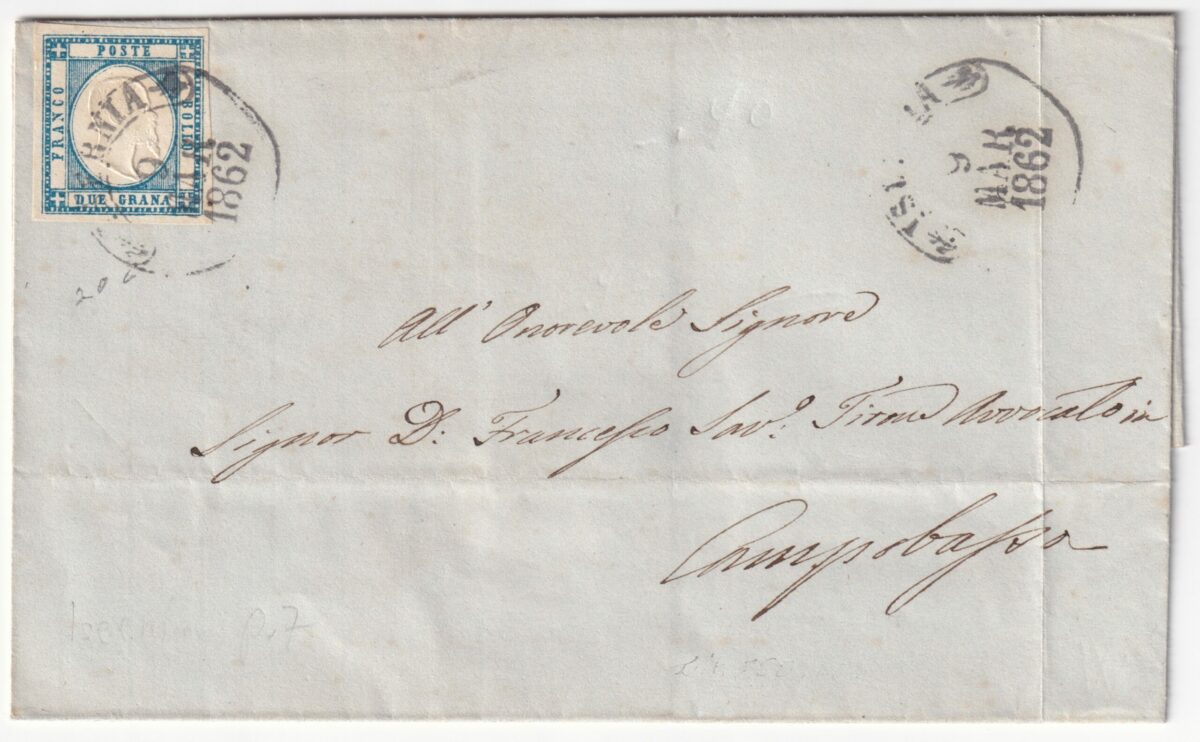 POSTE
FRANCO
BOLLO
DUE GRANA
RNIA
9
MAR
1862
IS
IA
9
MAR
1862
20
All' Onorevole Signore
Signor D: Francesco Sav.o Tirone Avvocato in
Campobasso